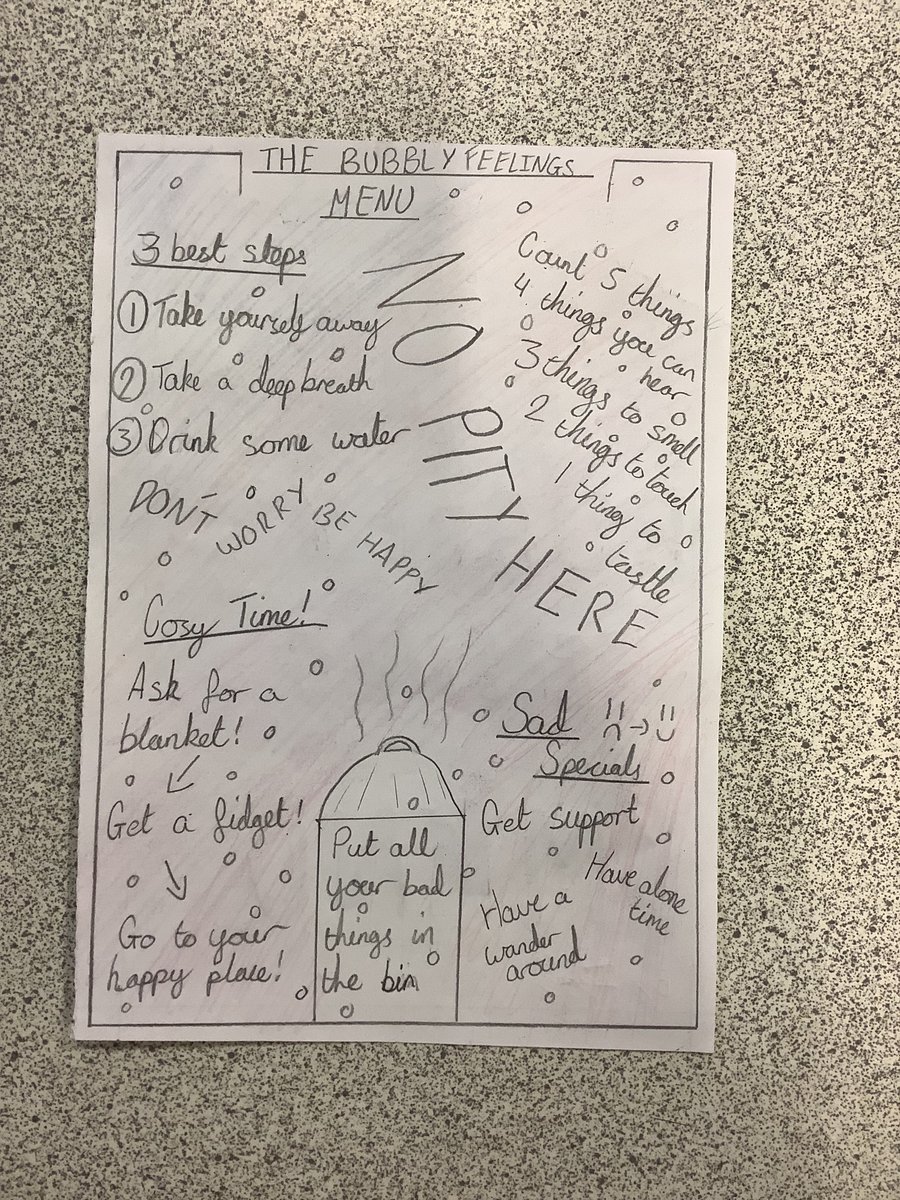 THE BUBBLY FEELINGS
MENU
3 best steps
① Take yourself away
② Take a deep breath
③ Drink some water
DON'T WORRY BE HAPPY
NO PITY HERE
Count 5 things
4 things you can
hear
3 things to smell
2 things to touch
1 thing to
tastle
Cosy Time!
Ask for a
blanket!
Get a fidget!
Go to your
happy place!
Put all
your bad
things in
the bin
Sad
Specials
Get support
Have alone
time
Have a
wander
around